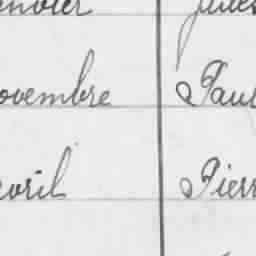 anvier Jules
ovembre Paul
avril Pierr